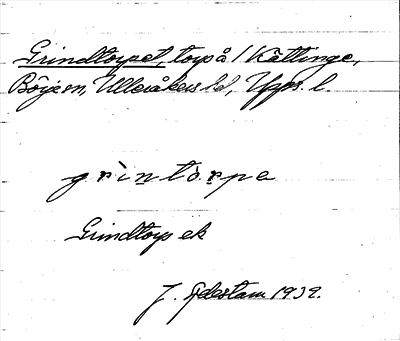 Grindtorpet, torp å 1 Kättinge,
Börje sn, Ulleråkers hd, Upps. l.
grìntòrpe
Grindtorp ek
J. 1932.